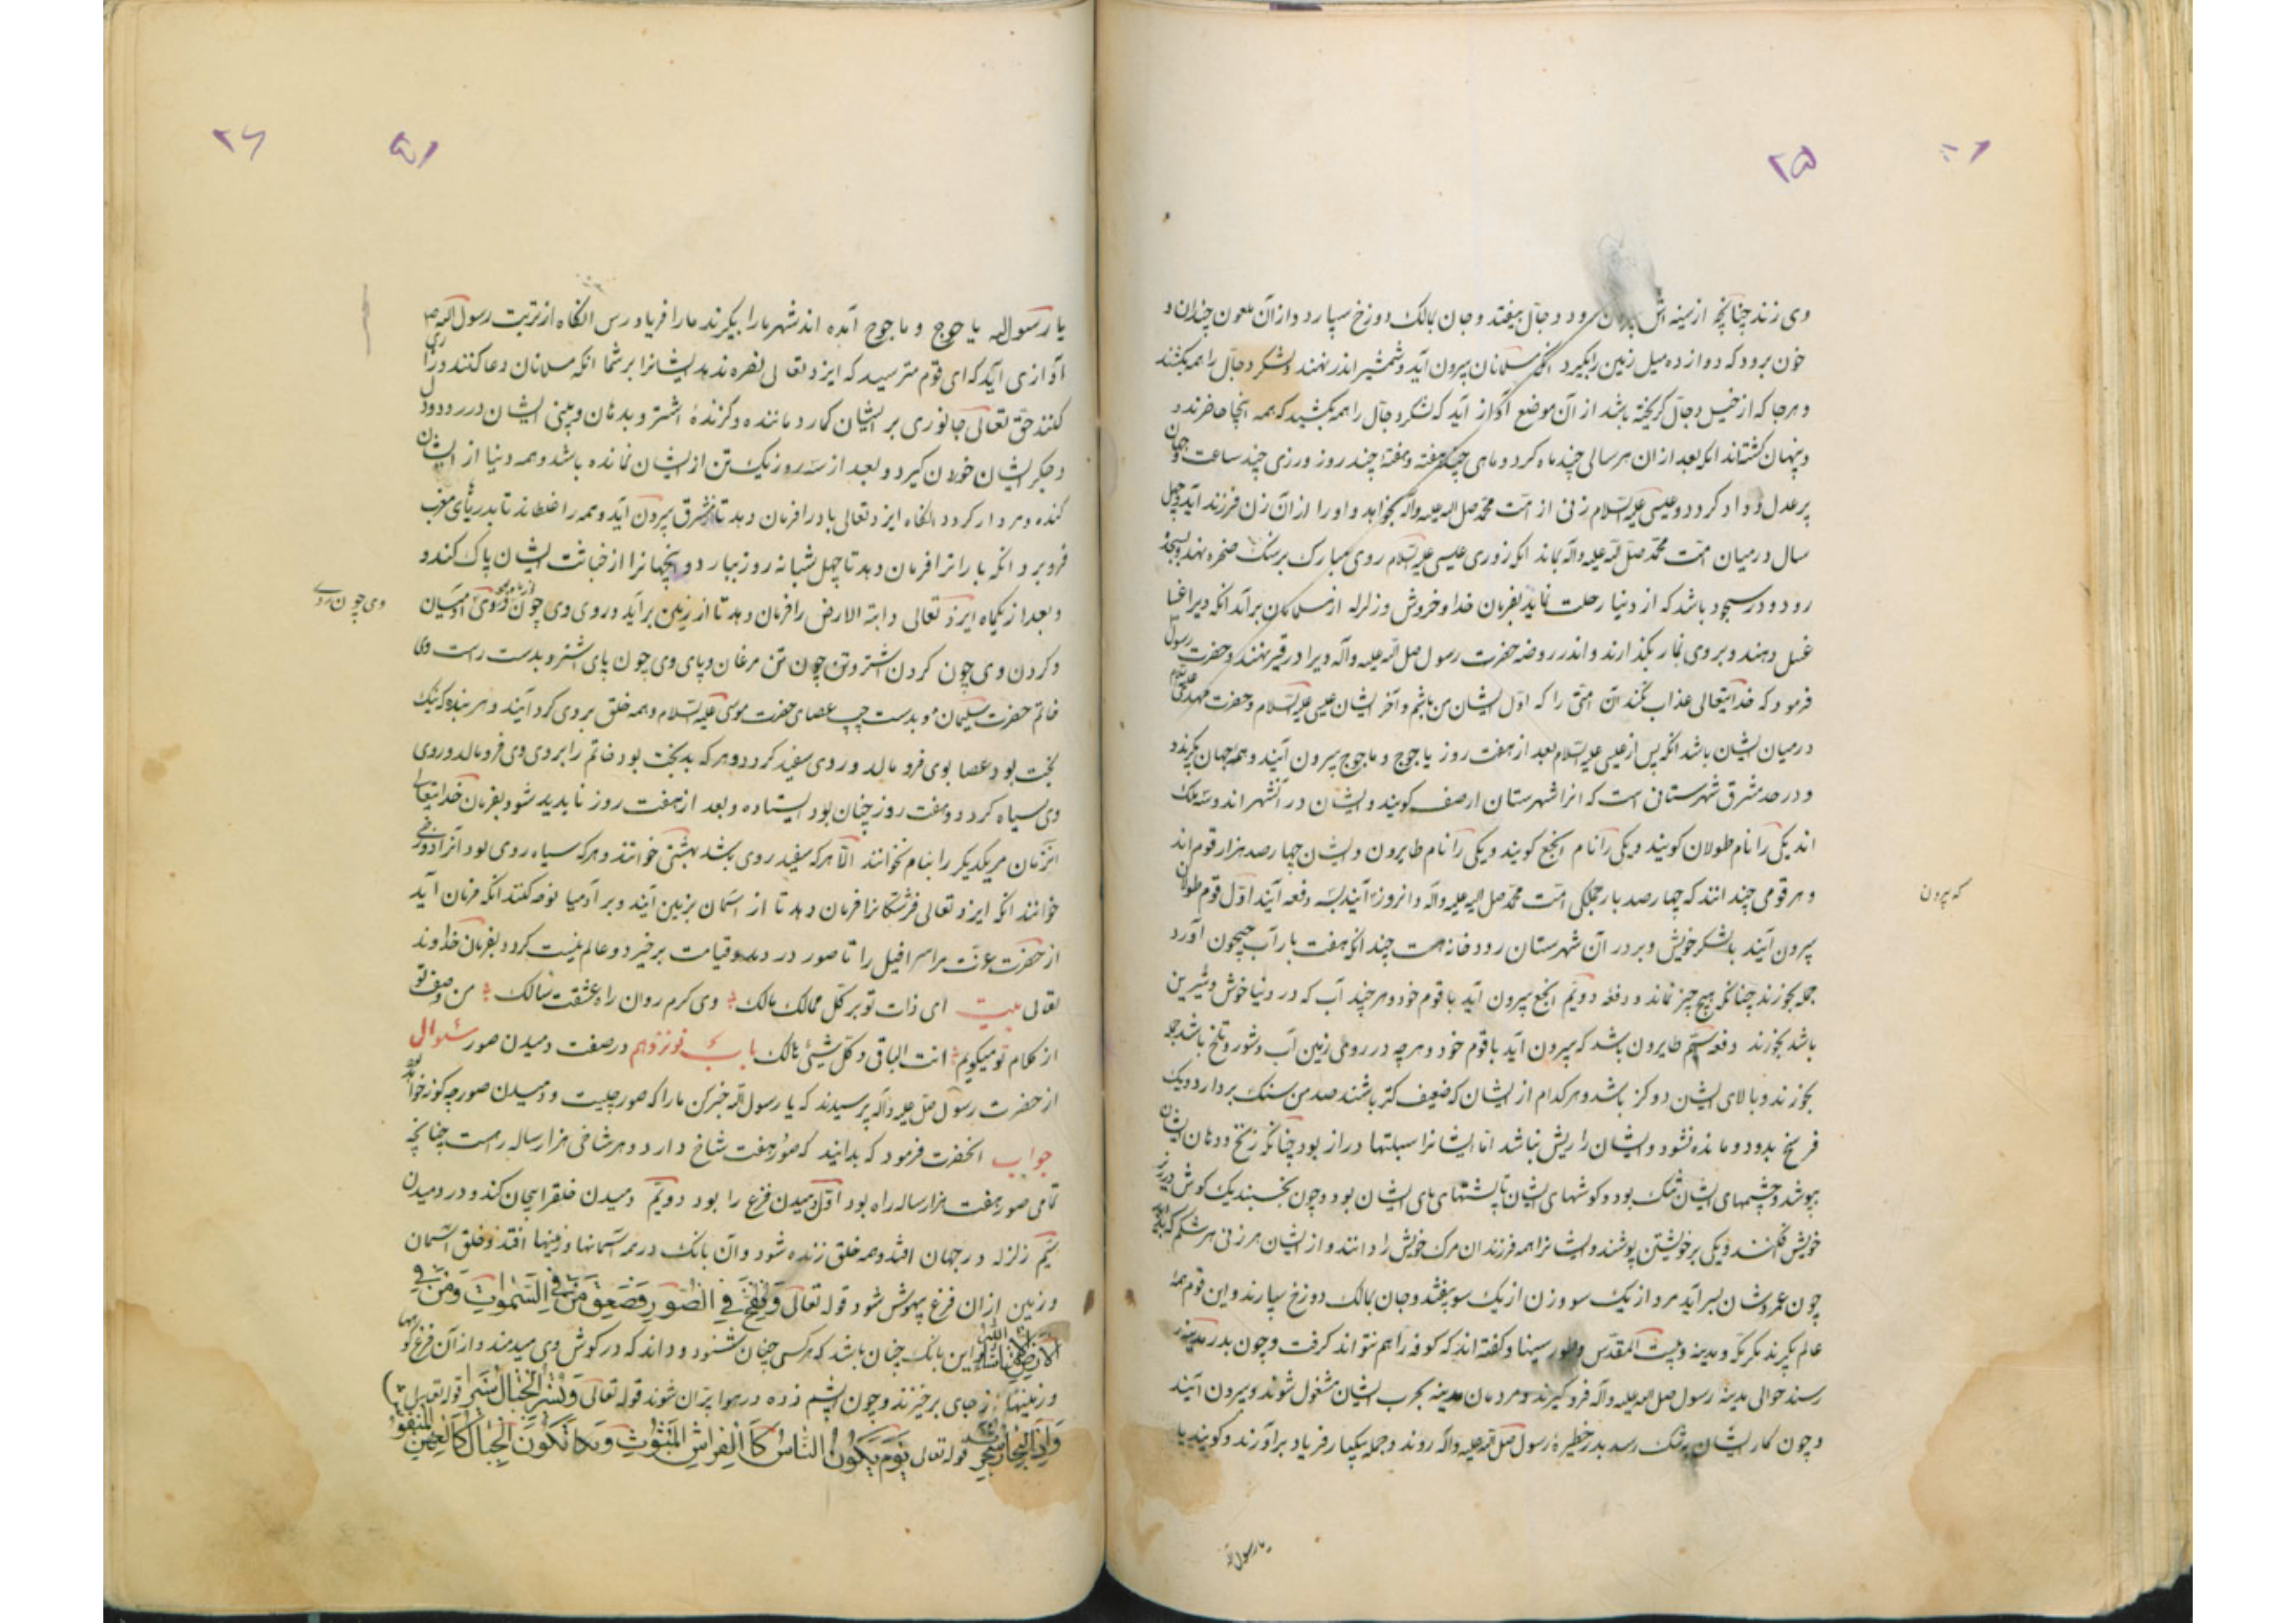 ۲۵
وی زند چنانچه از سینه اش بیرون رود و دجال بیفتد و جان بمالک دوزخ سپارد و از آن ملعون چندان و
خون برود که دوازده میل زمین را بگیرد انگه مسلمانان بیرون آیند و شمشیر اندر نهند و لشکر دجال را همه بکشند
و هر جا که از خیل دجال گریخته باشد از آن موضع آواز آید که لشکر دجال را همه بکشید که همه اینجا حاضرند و
و پنهان گشته اند انگه بعد از ان هر سالی چند ماه گردد و ماهی چند هفته و هفته چند روز و روزی چند ساعت و جهان
پر عدل و داد گردد و عیسی علیه السلام زنی از امت محمد صلی الله علیه وآله بخواهد و او را از آن زن فرزند آید و چهل
سال در میان امت محمد صلی الله علیه وآله بماند انگه روزی عیسی علیه السلام روی مبارک بر سنگ صخره نهد و بسجد
رود و در سجود باشد که از دنیا رحلت نماید بفرمان خدا و خروش و زلزله از مسلمانان برآید انگه ویرا غسا
غسل دهند و بر وی نماز بگذارند و اندر روضه حضرت رسول صلی الله علیه وآله ویرا در قبر نهند و حضرت رسول
فرمود که خدایتعالی عذاب نکند آن امتی را که اول ایشان من باشم و آخر ایشان عیسی علیه السلام و حضرت مهدی علیه السلام
در میان ایشان باشد انگه پس از عیسی علیه السلام بعد از هفت روز یاجوج و ماجوج بیرون آیند و همه جهان بگیرند و
و در حد مشرق شهرستانی است که انرا شهرستان ارصف گویند و ایشان در آنشهر اند و سه ملک
اند یکی را نام طولان گویند و یکی را نام انجع گویند و یکی را نام طایرون و ایشان چهارصد هزار قوم اند
و هر قومی چند انند که چهارصد بار جملگی امت محمد صلی الله علیه وآله و انروز آیند بسه دفعه آیند اول قوم طولان
که بیرون
بیرون آیند با لشکر خویش و بر در آن شهرستان رودخانه است چند انکه هفت بار آب جیحون آورد
جمله بخورند چنانکه هیچ چیز نماند و دفعه دویم انجع بیرون آید با قوم خود و هر چند آب که در دنیا خوش و شیرین
باشد بخورند دفعه سیم طایرون باشد که بیرون آید با قوم خود و هر چه در روی زمین آب و شور و تلخ باشد جمله
بخورند و بالای ایشان دو گز باشد و هر کدام از ایشان که ضعیف تر باشند صد من سنگ بردارد و یک
فرسخ بدود و مانده نشود و ایشان را ریش نباشد اما ایشانرا سبلتها دراز بود چنانکه زنخ و دهان ایشان
بپوشد و چشمهای ایشان تنک بود و گوشهای ایشان تا پشتهای پای ایشان بود و چون بخسبند یک گوش در زیر
خویش افکنند و یکی بر خویشتن پوشند و ایشانرا همه فرزندان مرگ خویش را دانند و از ایشان هر زنی هر شکم که
چون عمر دشان بسر آید مرد از یک سو و زن از یک سو بیفتد و جان بمالک دوزخ سپارند و این قوم همه
عالم بگیرند مگر مکه و مدینه و بیت المقدس و طور سینا و گفته اند که کوفه را هم نتواند گرفت و چون بدر مدینه
رسند حوالی مدینه رسول صلی الله علیه وآله فرو گیرند و مردمان مدینه بحرب ایشان مشغول شوند و بیرون آیند
و چون کار ایشان بتنک رسد بدر حظیره رسول صلی الله علیه وآله روند و جمله بیکبار فریاد برآورند و گویند یا
یا رسول الله
۲۶
یا رسول الله یاجوج و ماجوج آمده اند شهر ما را بگیرند ما را فریاد رس انگاه از تربت رسول الله ص
آوازی آید که ای قوم مترسید که ایزد تعالی نصره ندهد ایشانرا بر شما انگه مسلمانان دعا کنند و زاری
کنند حق تعالی جانوری بر ایشان گمارد ماننده و گزنده اشتر و بدهان و بینی ایشان در رود و دل
و جگر ایشان خوردن گیرد و بعد از سه روز یک تن از ایشان نمانده باشد و همه دنیا از ایشان
گنده و مردار گردد انگاه ایزد تعالی باد را فرمان دهد تا از مشرق بیرون آید و همه را غلطاند تا بدریای مغرب
فرو برد انگه بارانرا فرمان دهد تا چهل شبانه روز ببارد و جهانرا از خباثت ایشان پاک کند و
و بعد از یکماه ایزد تعالی دابة الارض را فرمان دهد تا از زمین برآید و روی وی چون روی آدمیان
وی چون روی
و گردن وی چون گردن اشتر و تن چون تن مرغان و پای وی چون پای اشتر و بدست راست وی
خاتم حضرت سلیمان و بدست چپ عصای حضرت موسی علیه السلام و همه خلق بر وی گرد آیند و هر بنده که نیک
بخت بود عصا بوی فرو مالد و روی سفید گردد و هر که بدبخت بود خاتم را بر وی وی فرو مالد و روی
وی سیاه گردد و هفت روز چنان بود ایستاده و بعد از هفت روز ناپدید شود بفرمان خدایتعالی
انزمان مر یکدیگر را بنام نخوانند الا هر که سفید روی باشد بهشتی خوانند و هر که سیاه روی بود آنرا دوزخی
خوانند انگه ایزد تعالی فرشتگانرا فرمان دهد تا از آسمان بزمین آیند و بر آدمیا نوحه کنند انگه فرمان آید
از حضرت عزت مر اسرافیل را تا صور در دمد و قیامت برخیزد و عالم نیست گردد بفرمان خداوند
تعالی بیت ای ذات تو بر کل ممالک مالک وی کرم روان راه عشقت سالک من وصف تو
از کلام تو میگویم انت الباقی و کل شیئ هالک باب نوزدهم در صفت دمیدن صور سئوال
از حضرت رسول صلی الله علیه وآله پرسیدند که یا رسول الله خبر کن ما را که صور چیست و دمیدن صور چه گونه خواهد بود
جواب انحضرت فرمود که بدانید که صور هفت شاخ دارد و هر شاخی هزار ساله راه است چنانچه
تمامی صور هفت هزار ساله راه بود اول دمیدن فزع را بود دویم دمیدن خلقرا بیجان کند و در دمیدن
سیم زلزله در جهان افتد و همه خلق زنده شود و آن بانگ در همه آسمانها و زمینها افتد و خلق آسمان
و زمین از ان فزع بیهوش شود قوله تعالی وَنُفِخَ فِی الصُّورِ فَصَعِقَ مَنْ فِی السَّمٰوٰتِ وَمَنْ فِی
الاَرْضِ اِلَّا مَا شَاءَ اللّٰهُ و این بانگ چنان باشد که هر کسی چنان شنود و داند که در گوش وی میدمند و از آن فزع کوهها
و زمینها از جای برخیزند و چون پشم زده در هوا پران شوند قوله تعالی وَبُسَّتِ الْجِبَالُ بَسًّا قوله تعالی
وَاِذَا الْبِحَارُ سُجِّرَتْ قوله تعالی یَوْمَ یَکُونُ النَّاسُ کَالْفَرَاشِ الْمَبْثُوثِ وَتَکُونُ الْجِبَالُ کَالْعِهْنِ الْمَنْفُوشِ